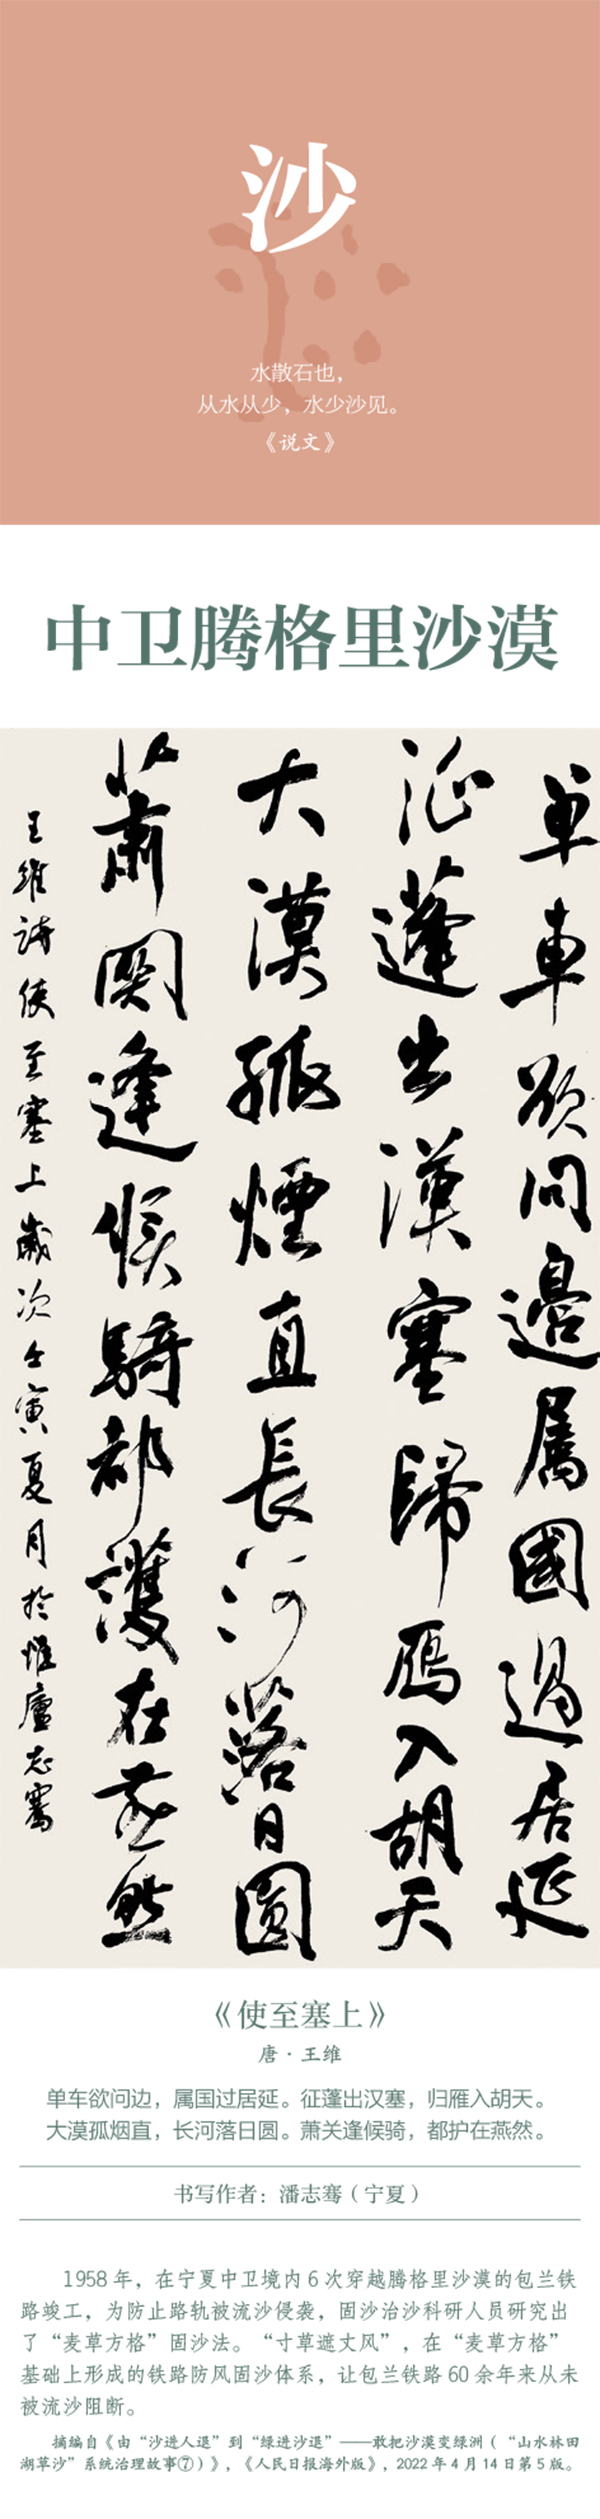 沙
水散石也，
从水从少，水少沙见。
《说文》
中卫腾格里沙漠
单車欲问邉属國過居延
征蓬出漢塞歸鴈入胡天
大漠孤煙直長河落日圆
萧関逢候騎都護在燕然
王維诗使至塞上歲次壬寅夏月於惟廬志骞
《使至塞上》
唐·王维
单车欲问边，属国过居延。征蓬出汉塞，归雁入胡天。
大漠孤烟直，长河落日圆。萧关逢候骑，都护在燕然。
书写作者：潘志骞（宁夏）
1958 年，在宁夏中卫境内 6 次穿越腾格里沙漠的包兰铁
路竣工，为防止路轨被流沙侵袭，固沙治沙科研人员研究出
了“麦草方格”固沙法。“寸草遮丈风”，在“麦草方格”
基础上形成的铁路防风固沙体系，让包兰铁路 60 余年来从未
被流沙阻断。
摘编自《由“沙进人退”到“绿进沙退”——敢把沙漠变绿洲（“山水林田
湖草沙”系统治理故事⑦）》，《人民日报海外版》，2022 年 4 月 14 日第 5 版。